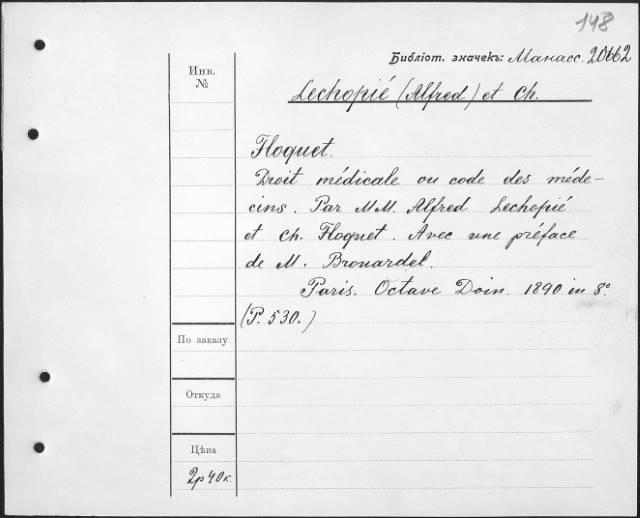 148
Библіот. значекъ: Манасс. 20662
Инв.
№
Lechopié (Alfred) et Ch.
Floquet.
Droit médicale ou code des méde-
cins. Par MM. Alfred Lechopié
et Ch. Floquet. Avec une préface
de M. Brouardel.
Paris. Octave Doin. 1890 in 8°
(P. 530.)
По заказу
Откуда
Цѣна
2р 40к.